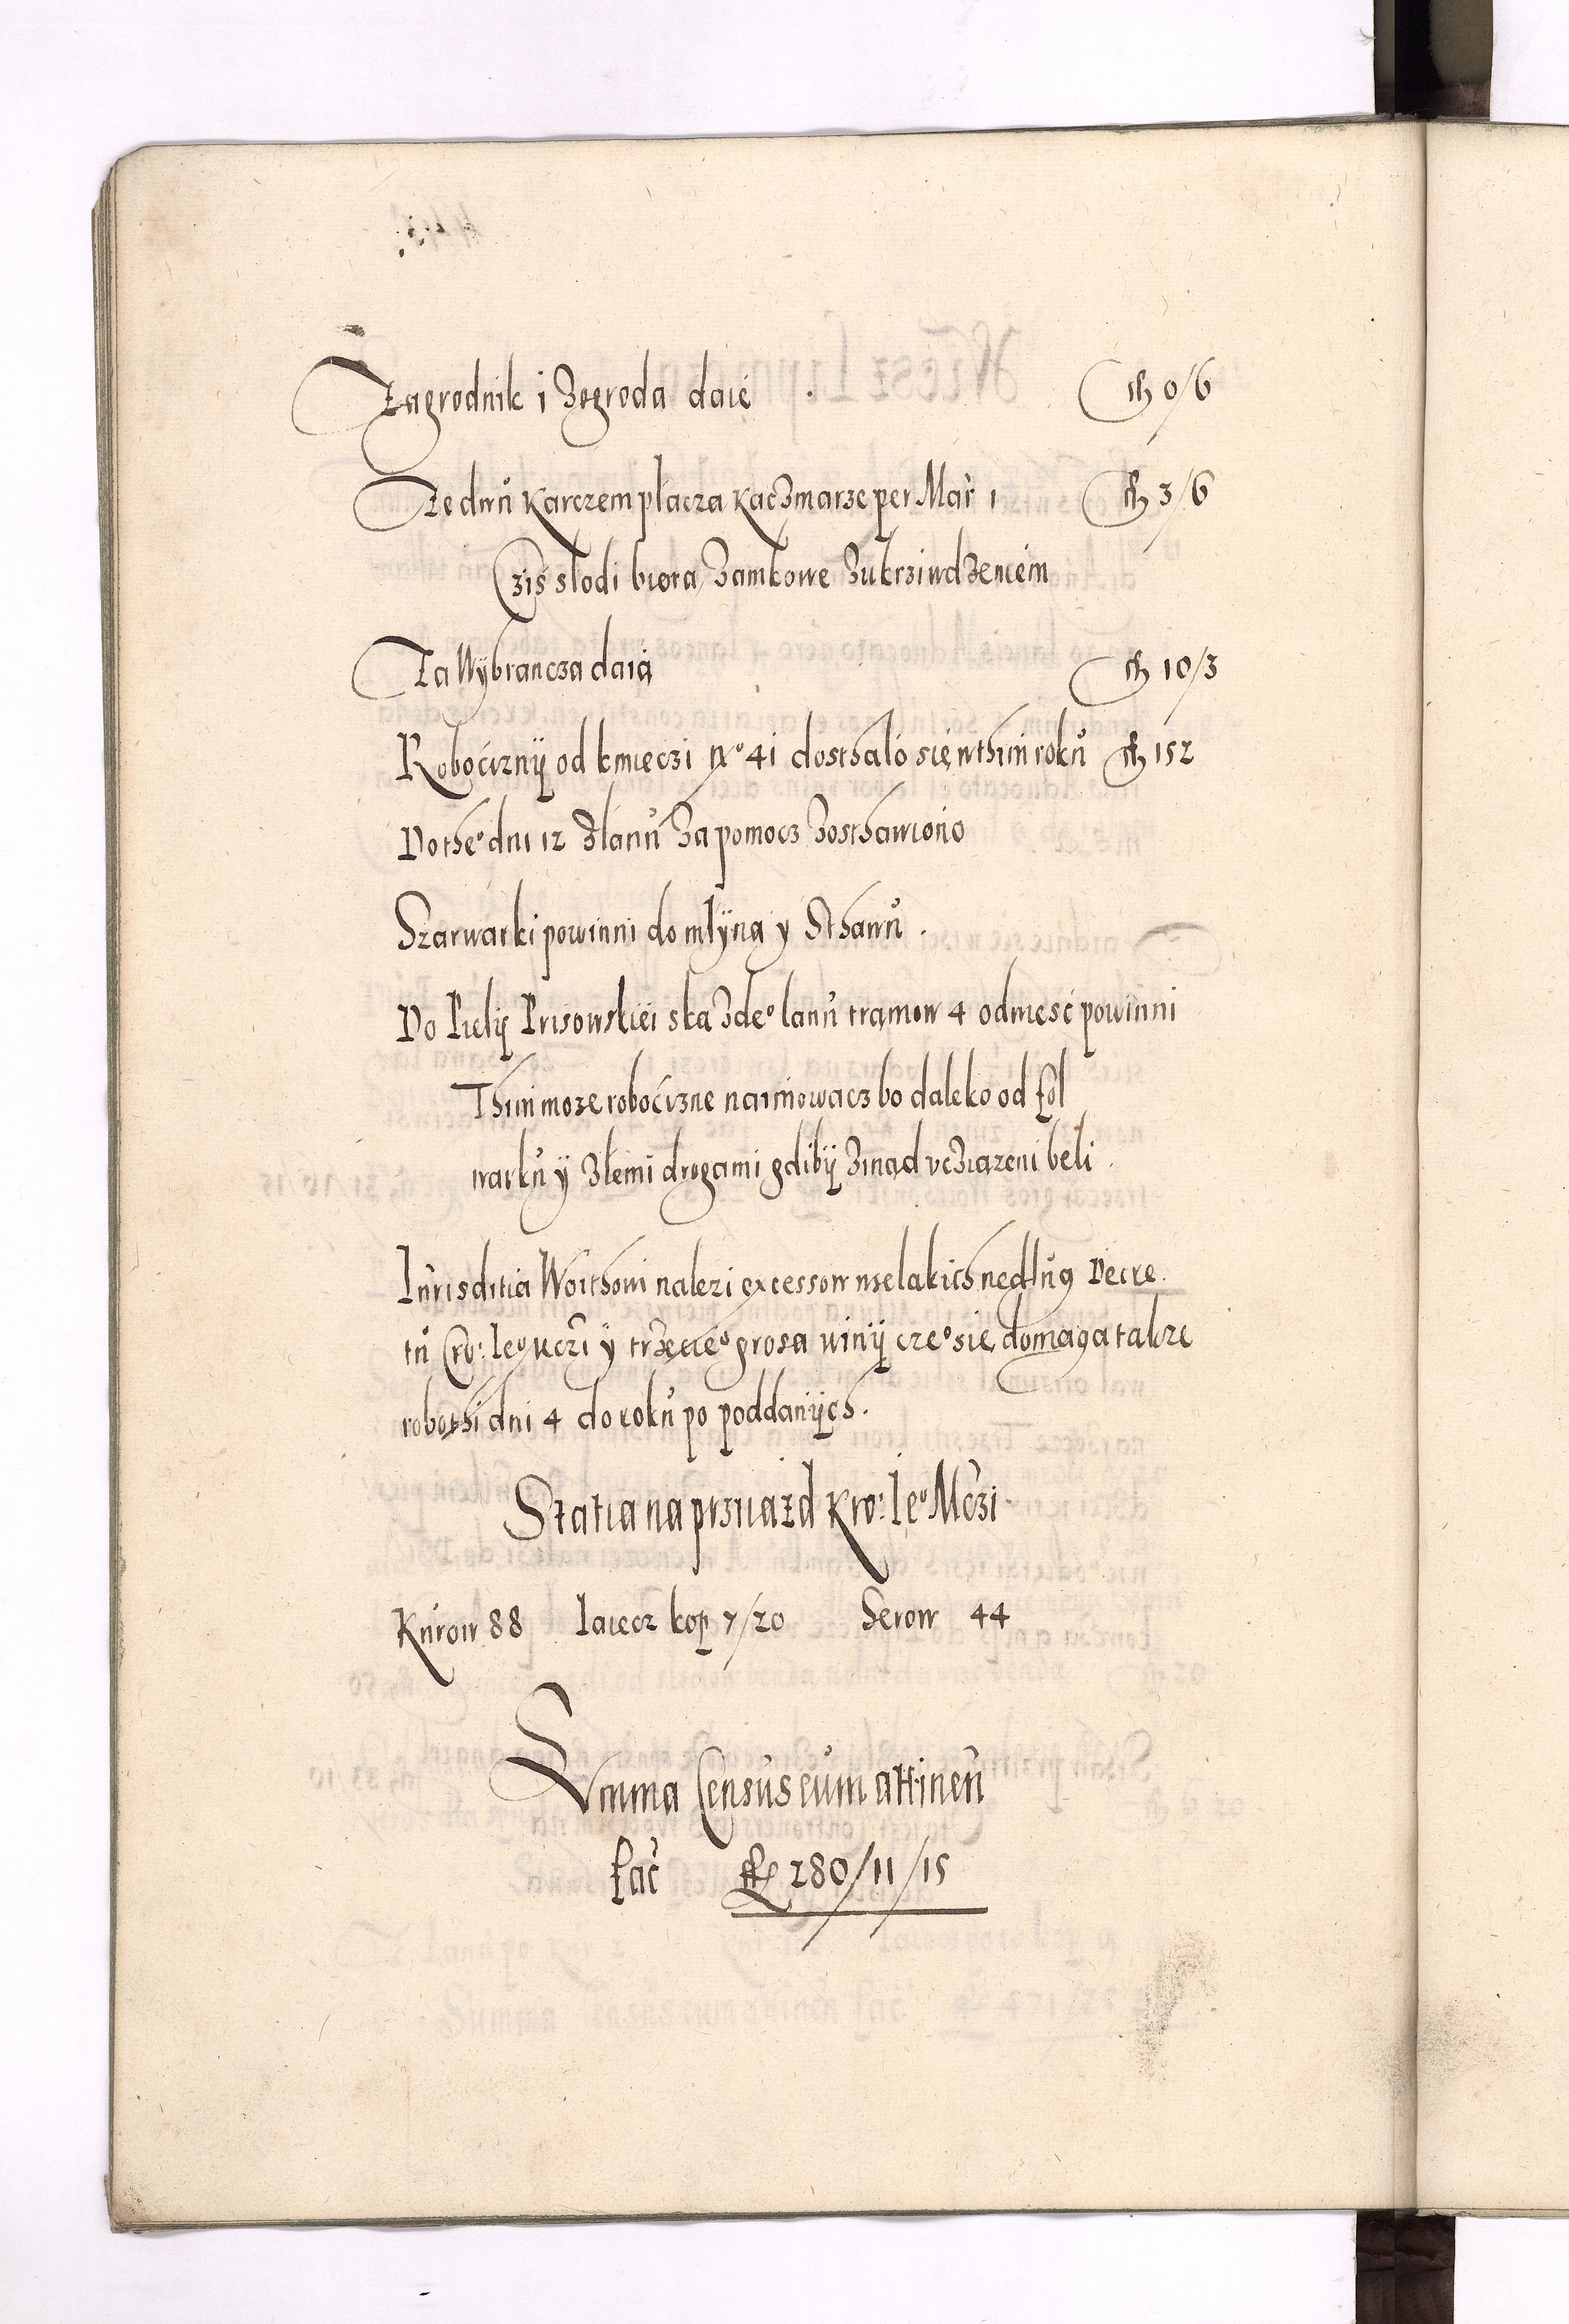 Zagrodnik i Zogroda daie fl 0/6
Ze dwu Karczem płacza Kaczmarze per Mar 1 fl 3/6
Cziś slodi biora Zamkowe Zukrziwdzeniem
Za Wybrancza daią fl 10/3
Roboćiznÿ od kmieczi No 41 dosthało się wthim roku fl 152
Do theo dni 12 Złanu Za pomocz Zosthawiono
Szarwarki powinni do młÿna y Sthawu.
Do Piełÿ Prisowskiei skaZdeo lanu tramow 4 odwiesć powinni
Thim moze roboćizne naimowacz bo daleko od fol
warku ÿ Złemi drogami gdibÿ Zinad vcziązeni beli.
Iurisditia Woithowi nalezi excessow wselakich wedlug Decre
tu Cro: Ieo Mczi ÿ trzecieo grosa winÿ czeo się domaga także
robothi dni 4 do roku po poddanÿch.
Statia na prziiazd Kro: Ieo Mczi
Kurow 88 Iaiecz kop 7/20 Serow 44
Summa Census cum attinen
fac fl 280/11/15